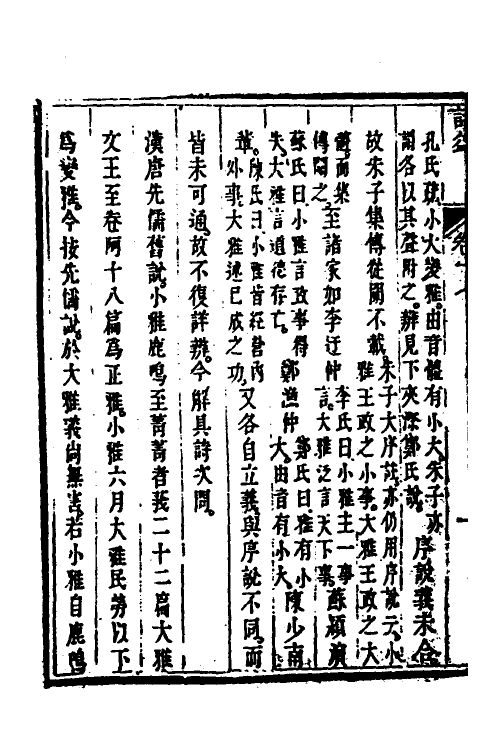 孔氏疏小大變雅由音體有小大朱子亦
謂各以其聲附之辨見下夾漈鄭氏說
序說義未合
故朱子集傳從闕不載
朱子大序註亦仍用序說云小
雅王政之小事大雅王政之大
而集
傳闕之
至諸家如李迂仲
李氏曰小雅主一事
言大雅泛言天下事
蘇潁濱
蘇氏曰小雅言政事得
失大雅言道德存亡
鄭漁仲
鄭氏曰雅有小
大由音有小大
陳少南
輩
陳氏曰小雅皆經營內
外事大雅述已成之功
又各自立義與序說不同而
皆未可通故不復詳辨今解具詩次問
漢唐先儒舊說小雅鹿鳴至菁菁者莪二十二篇大雅
文王至卷阿十八篇為正雅小雅六月大雅民勞以下
為變雅今按先儒說於大雅義尚無害若小雅自鹿鳴